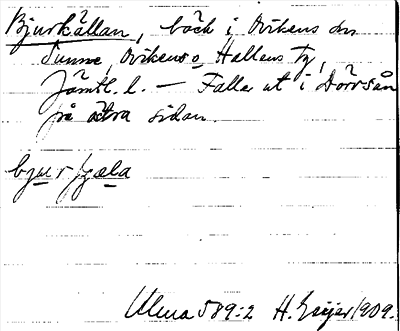 Bjurkällan, bäck i Ovikens sn
Sunne, Ovikens o Hallens tg,
Jämtl. l. — Faller ut i Dörrsån
på östra sidan.
bjurkjæla
Ulma 589:2 H. Geijer 1909.